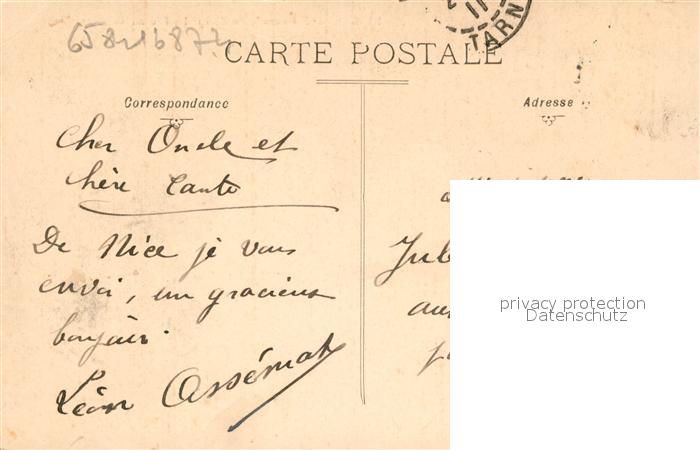 658-16872
TARN
CARTE POSTALE
Correspondance
Adresse
Cher Oncle et
chère tante
De Nice je vous
envoi, un gracieux
bonjour.
Léon
Jul
privacy protection
Datenschutz